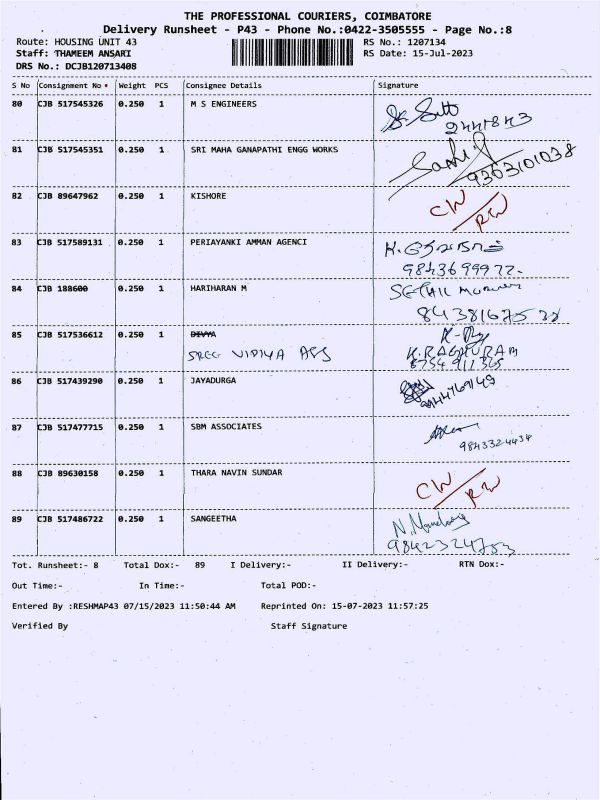 THE PROFESSIONAL COURIERS, COIMBATORE
Delivery Runsheet - P43 - Phone No.:0422-3505555 - Page No.:8
Route: HOUSING UNIT 43 RS No.: 1207134
Staff: THAMEEM ANSARI RS Date: 15-Jul-2023
DRS No.: DCJB120713408
S No Consignment No Weight PCS Consignee Details Signature
80 CJB 517545326 0.250 1 M S ENGINEERS
2441843
81 CJB 517545351 0.250 1 SRI MAHA GANAPATHI ENGG WORKS
9363101038
82 CJB 89647962 0.250 1 KISHORE CW/RW
83 CJB 517589131 0.250 1 PERIAYANKI AMMAN AGENCI
9843699972-
84 CJB 188600 0.250 1 HARIHARAN M
85 CJB 517536612 0.250 1 DIVYA
SREE VIDIYA K.RAGHURAM
8754911365
86 CJB 517439290 0.250 1 JAYADURGA
87 CJB 517477715 0.250 1 SBM ASSOCIATES
9843324434
88 CJB 89630158 0.250 1 THARA NAVIN SUNDAR CW/RW
89 CJB 517486722 0.250 1 SANGEETHA
9842324753
Tot. Runsheet:- 8 Total Dox:- 89 I Delivery:- II Delivery:- RTN Dox:-
Out Time:- In Time:- Total POD:-
Entered By :RESHMAP43 07/15/2023 11:50:44 AM Reprinted On: 15-07-2023 11:57:25
Verified By Staff Signature